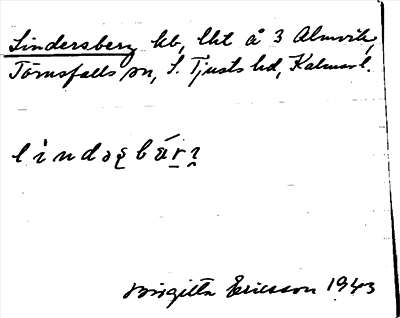 Lindersberg kb, lht å 3 Almvik,
Törnsfalls sn, S. Tjusts hd, Kalmar l.
Birgitta Ericsson 1943